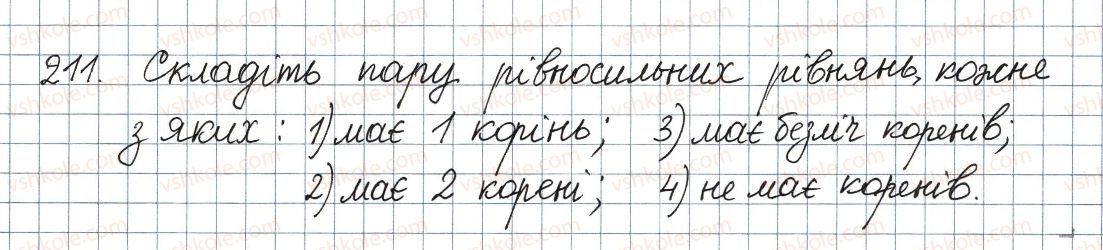 211. Складіть пару рівносильних рівнянь, кожне
з яких: 1) має 1 корінь; 3) має безліч коренів;
2) має 2 корені; 4) не має коренів.